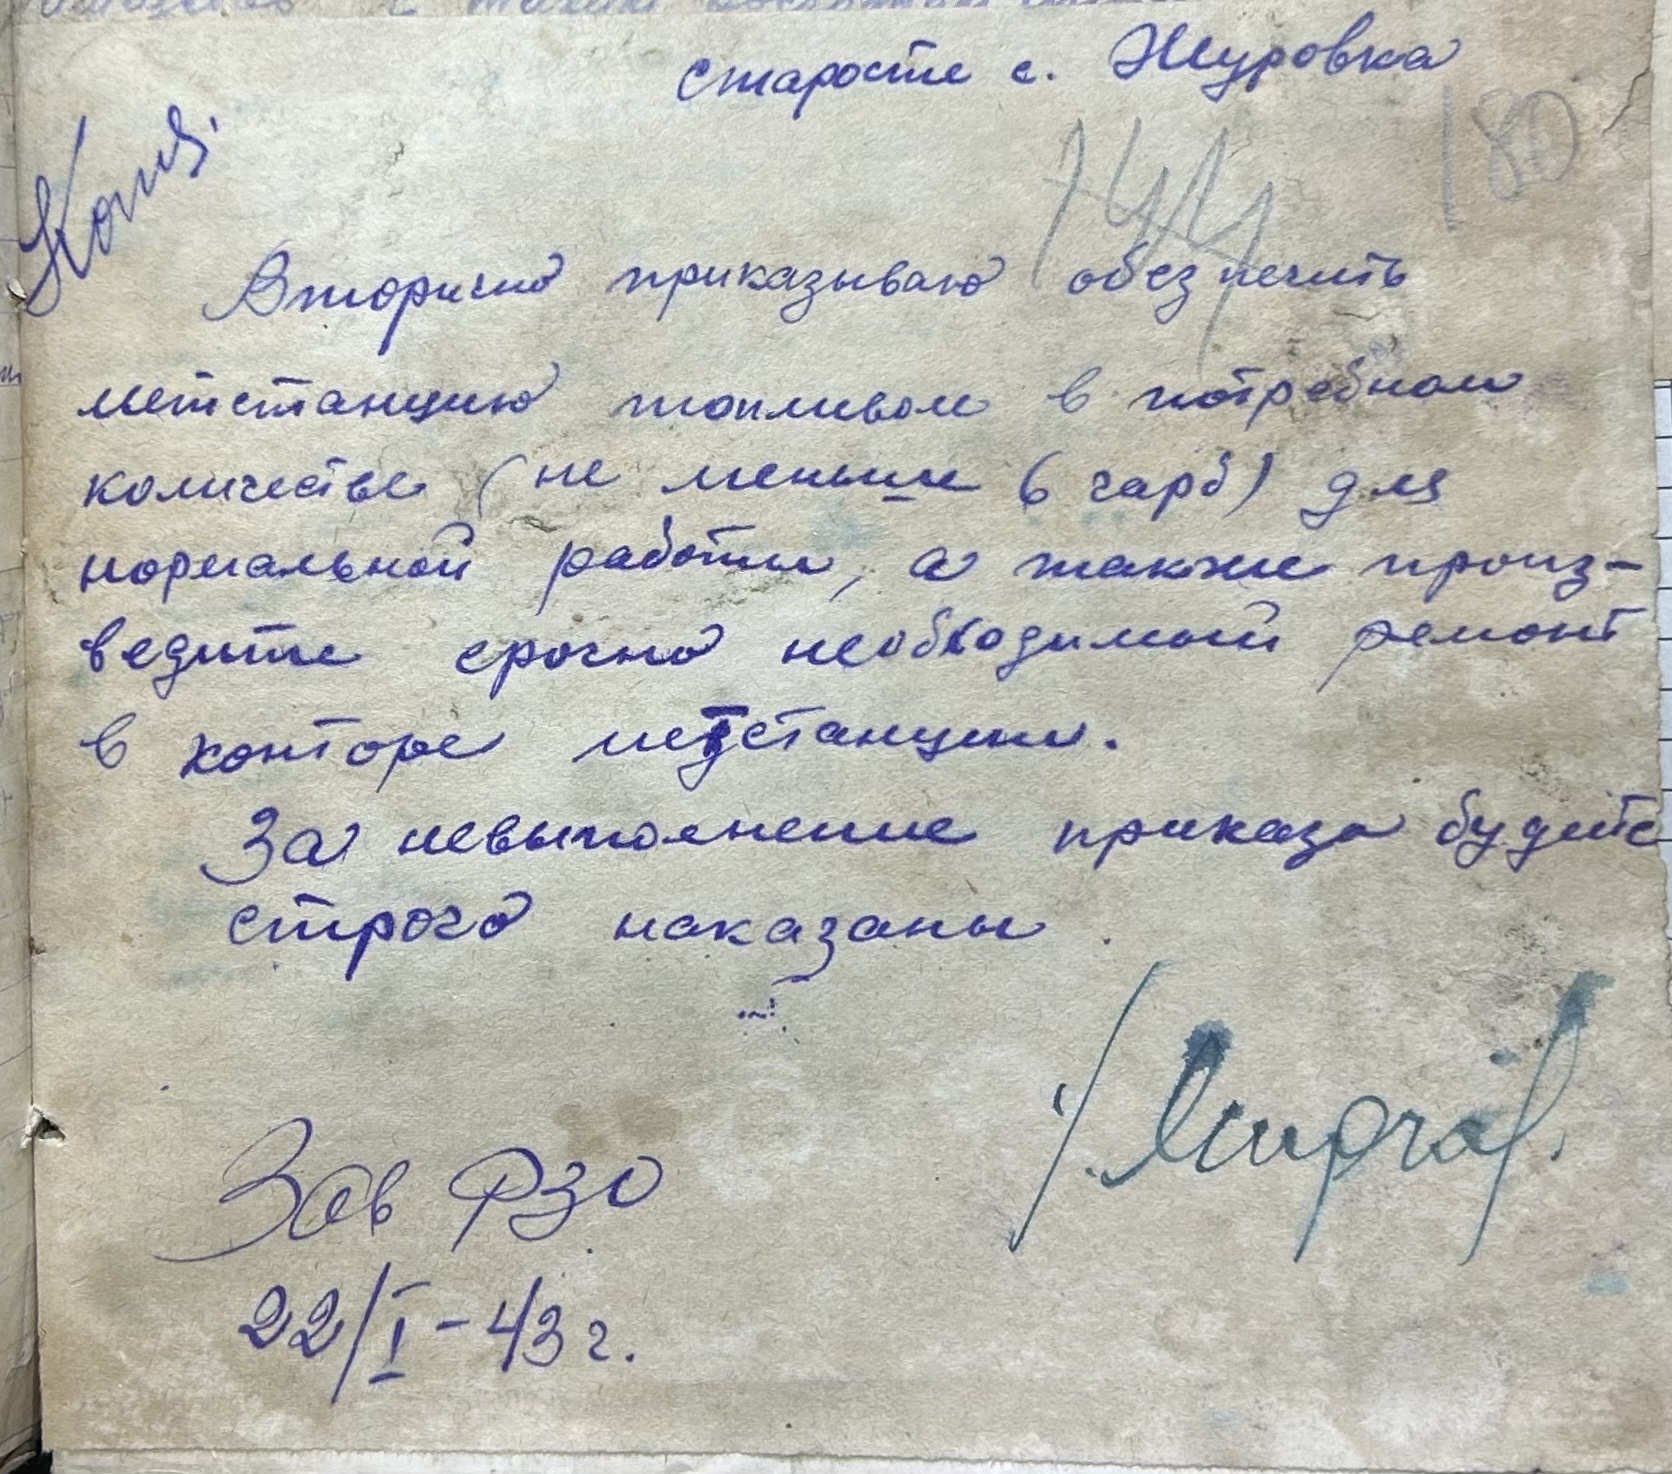 старосте с. Журовка
Копия.
180
144
Вторично приказываю обезпечить
метстанцию топливом в потребном
количестве (не меньше 6 гарб) для
нормальной работы, а также произ-
ведите срочно необходимый ремонт
в конторе метстанции.
За невыполнение приказа будете
строго наказаны.
Зав РЗО
22/I-43 г.